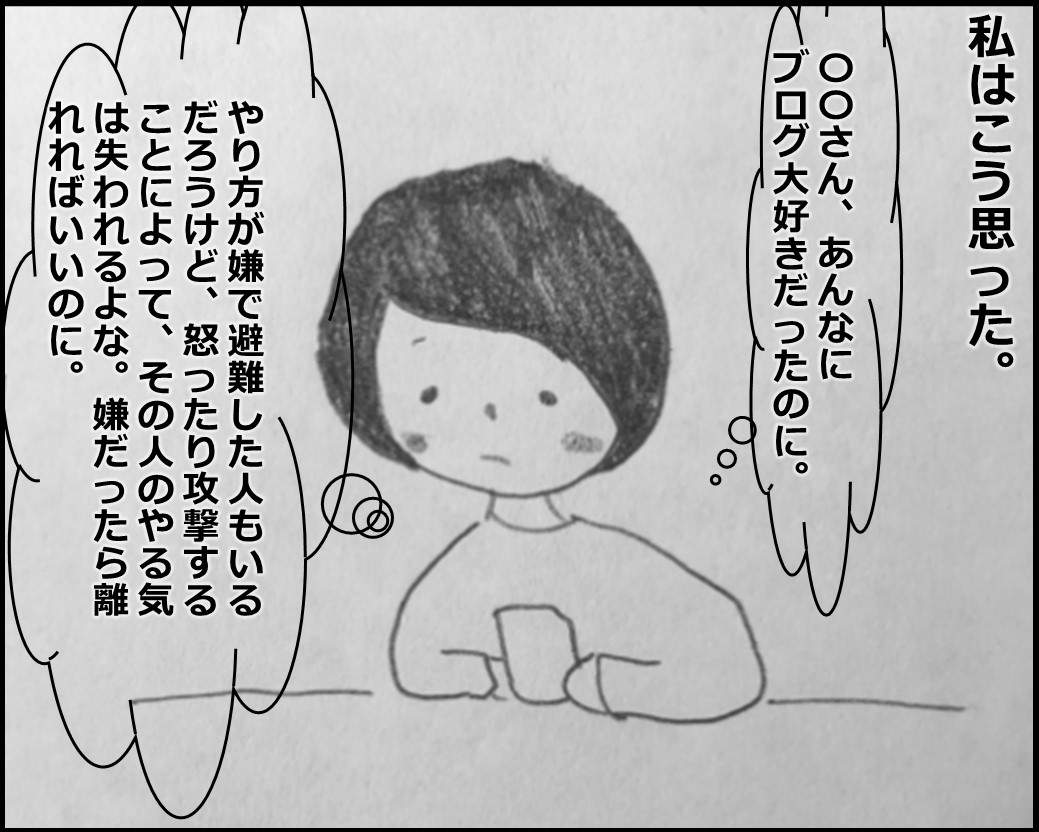 私はこう思った。
〇〇さん、あんなに
ブログ大好きだったのに。
やり方が嫌で避難した人もいる
だろうけど、怒ったり攻撃する
ことによって、その人のやる気
は失われるよな。嫌だったら離
れればいいのに。